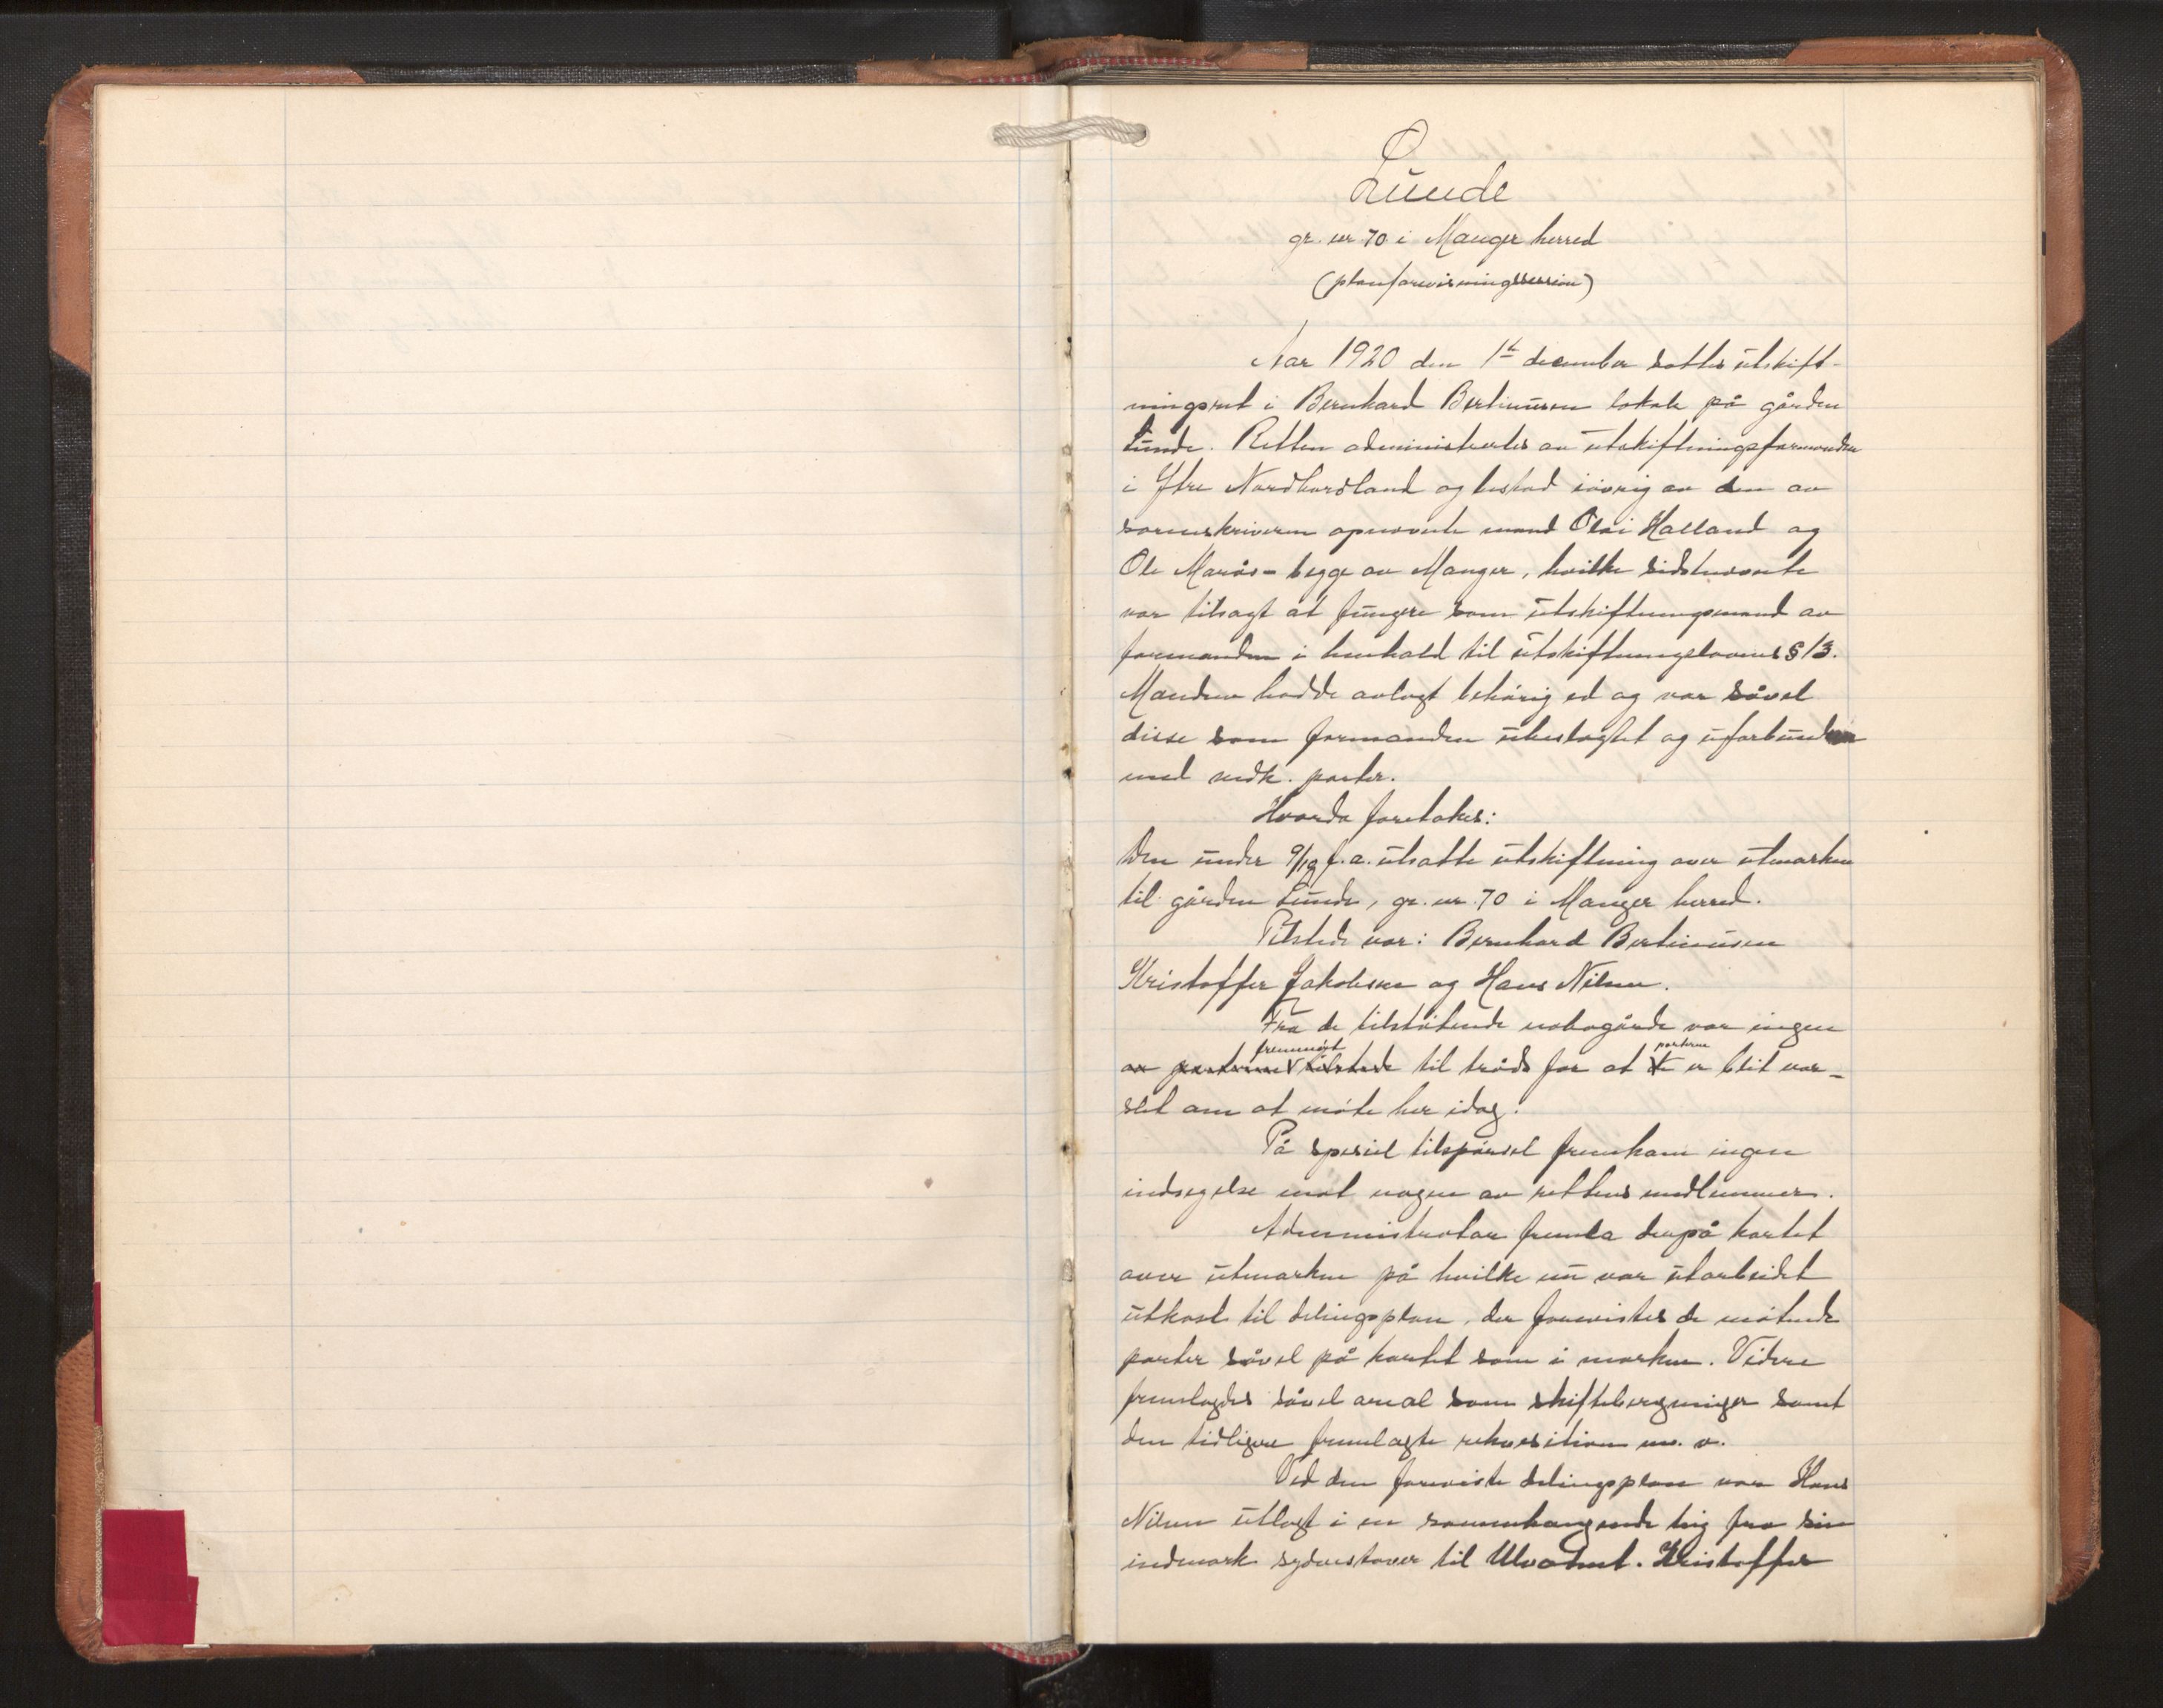 Lunde
gr. nr 70 i Manger herred
(planforevisningssession)
Aar 1920 den 1st december sattes utskift-
ningsret i Bernhard Bertinusen lokale på gården
Lunde. Retten administrertes av utskiftningsformanden
i Ytre Nordhordland og bestod iøvrig av den av
sorenskriveren opnevnte mænd Olai Halland og
Ole Marås - begge av Manger, hvilke sidstnævnte
var tilsagt at fungere som utskiftningsmænd av
formanden i henhold til utskiftningslovens § 13.
Mænden hadde avlagt behørig ed og var såvel
disse som formanden ubeslægtet og uforbunden
med vedk. parter.
Hvorda foretokes:
Den under 9/19 f.a. utsatte utskiftning over utmarken
til gården Lunde, gr. nr. 70 i Manger herred.
Tilstede var: Bernhard Bertinusen
Kristoffer Jakobsen og Hans Nilsen.
Fra de tilstøtende nabogårde var ingen
av parterne tilstede fremmøtt til tråds for at parterne er blit var-
slet om at møte her idag.
På spesiel tilspørsel fremkom ingen
indsigelse mot nogen av rettens medlemmer.
Administrator fremla derpå kartet
over utmarken på hvilke nu var utarbeidet
utkast til delingsplan, der forevistes de møtende
parter såvel på kartet som i marken. Videre
fremlagdes såvel areal som skifteberegninger samt
den tidligere fremlagte rekvisition m. v.
Ved den foreviste delingsplan var Hans
Nilsen utlagt i en sammenhangende teig fra sin
indmark sydvestover til Ulvatnet. Kristoffer